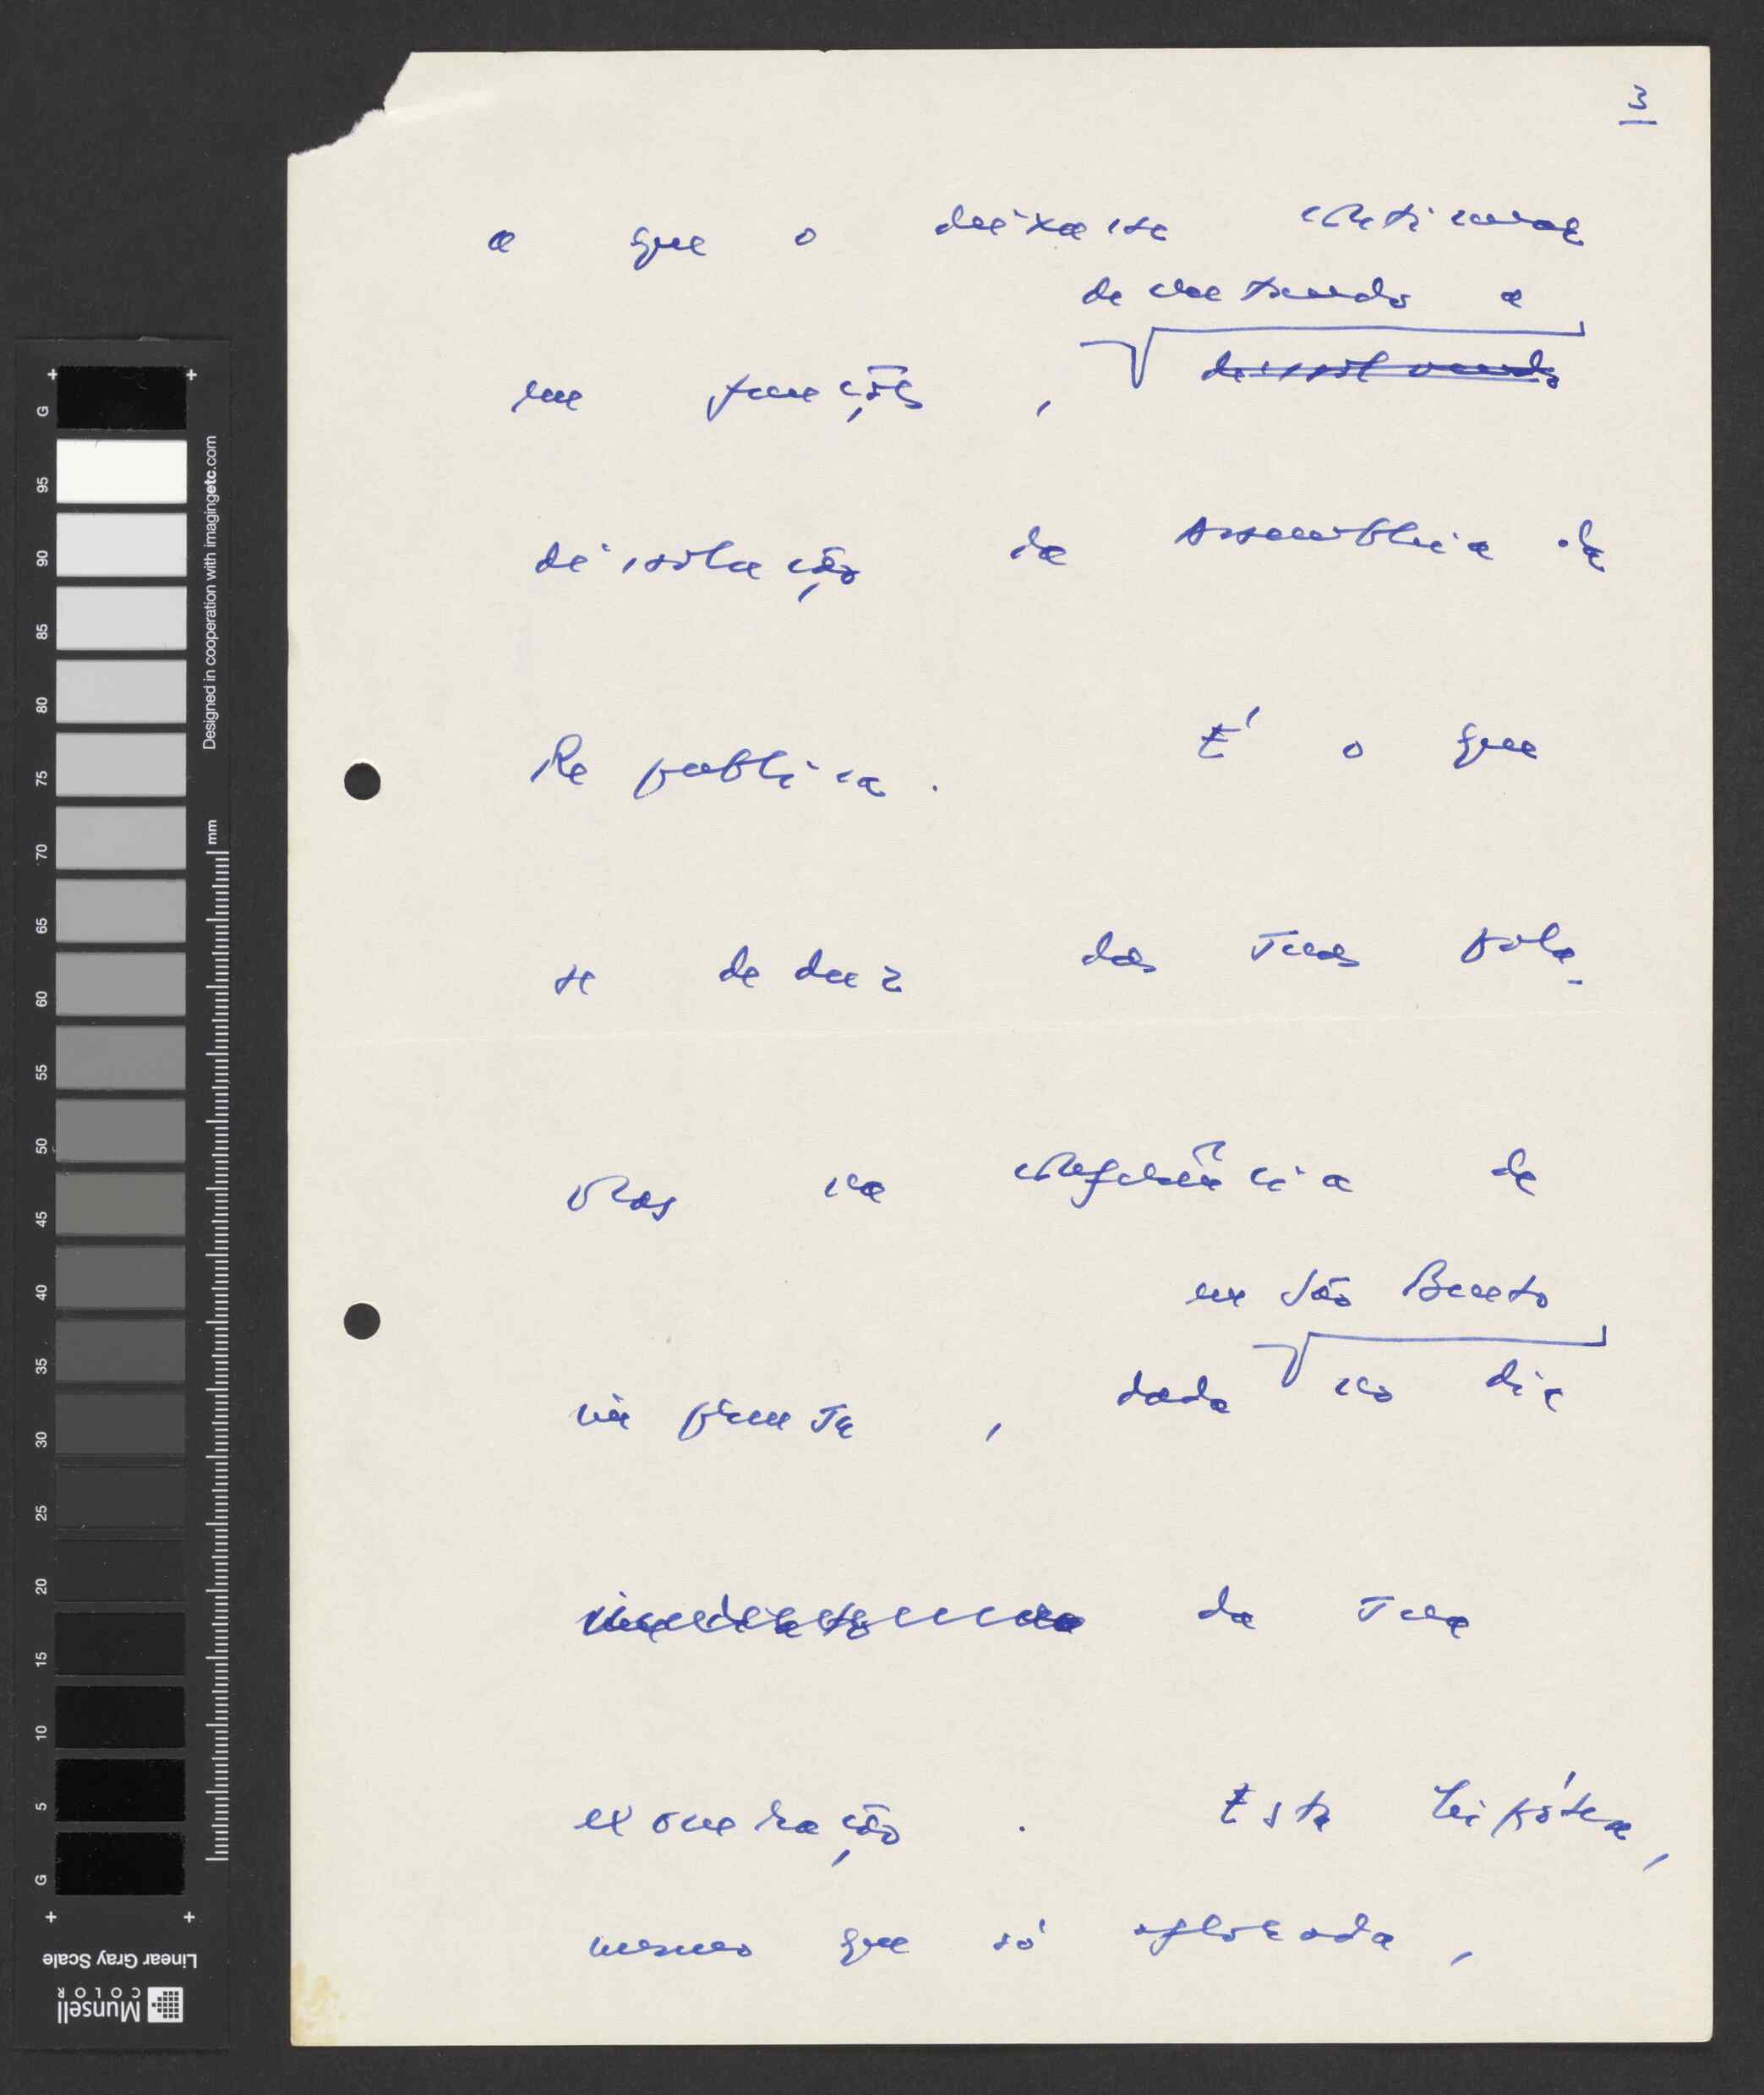 3
a que o deixasse continuar
decretando a
em funções, dissolvendo
dissolução da Assembleia da
República. É o que
se deduz das suas pala-
vras na conferência de
em São Bento
imprensa, dada no dia
da sua
exoneração. Esta hipótese,
mesmo que só aflorada,
G
95
90
85
80
75
70
65
60
55
50
45
40
35
30
25
20
15
10
5
G
mm
Designed in cooperation with imagingetc.com
Linear Gray Scale
Munsell
COLOR